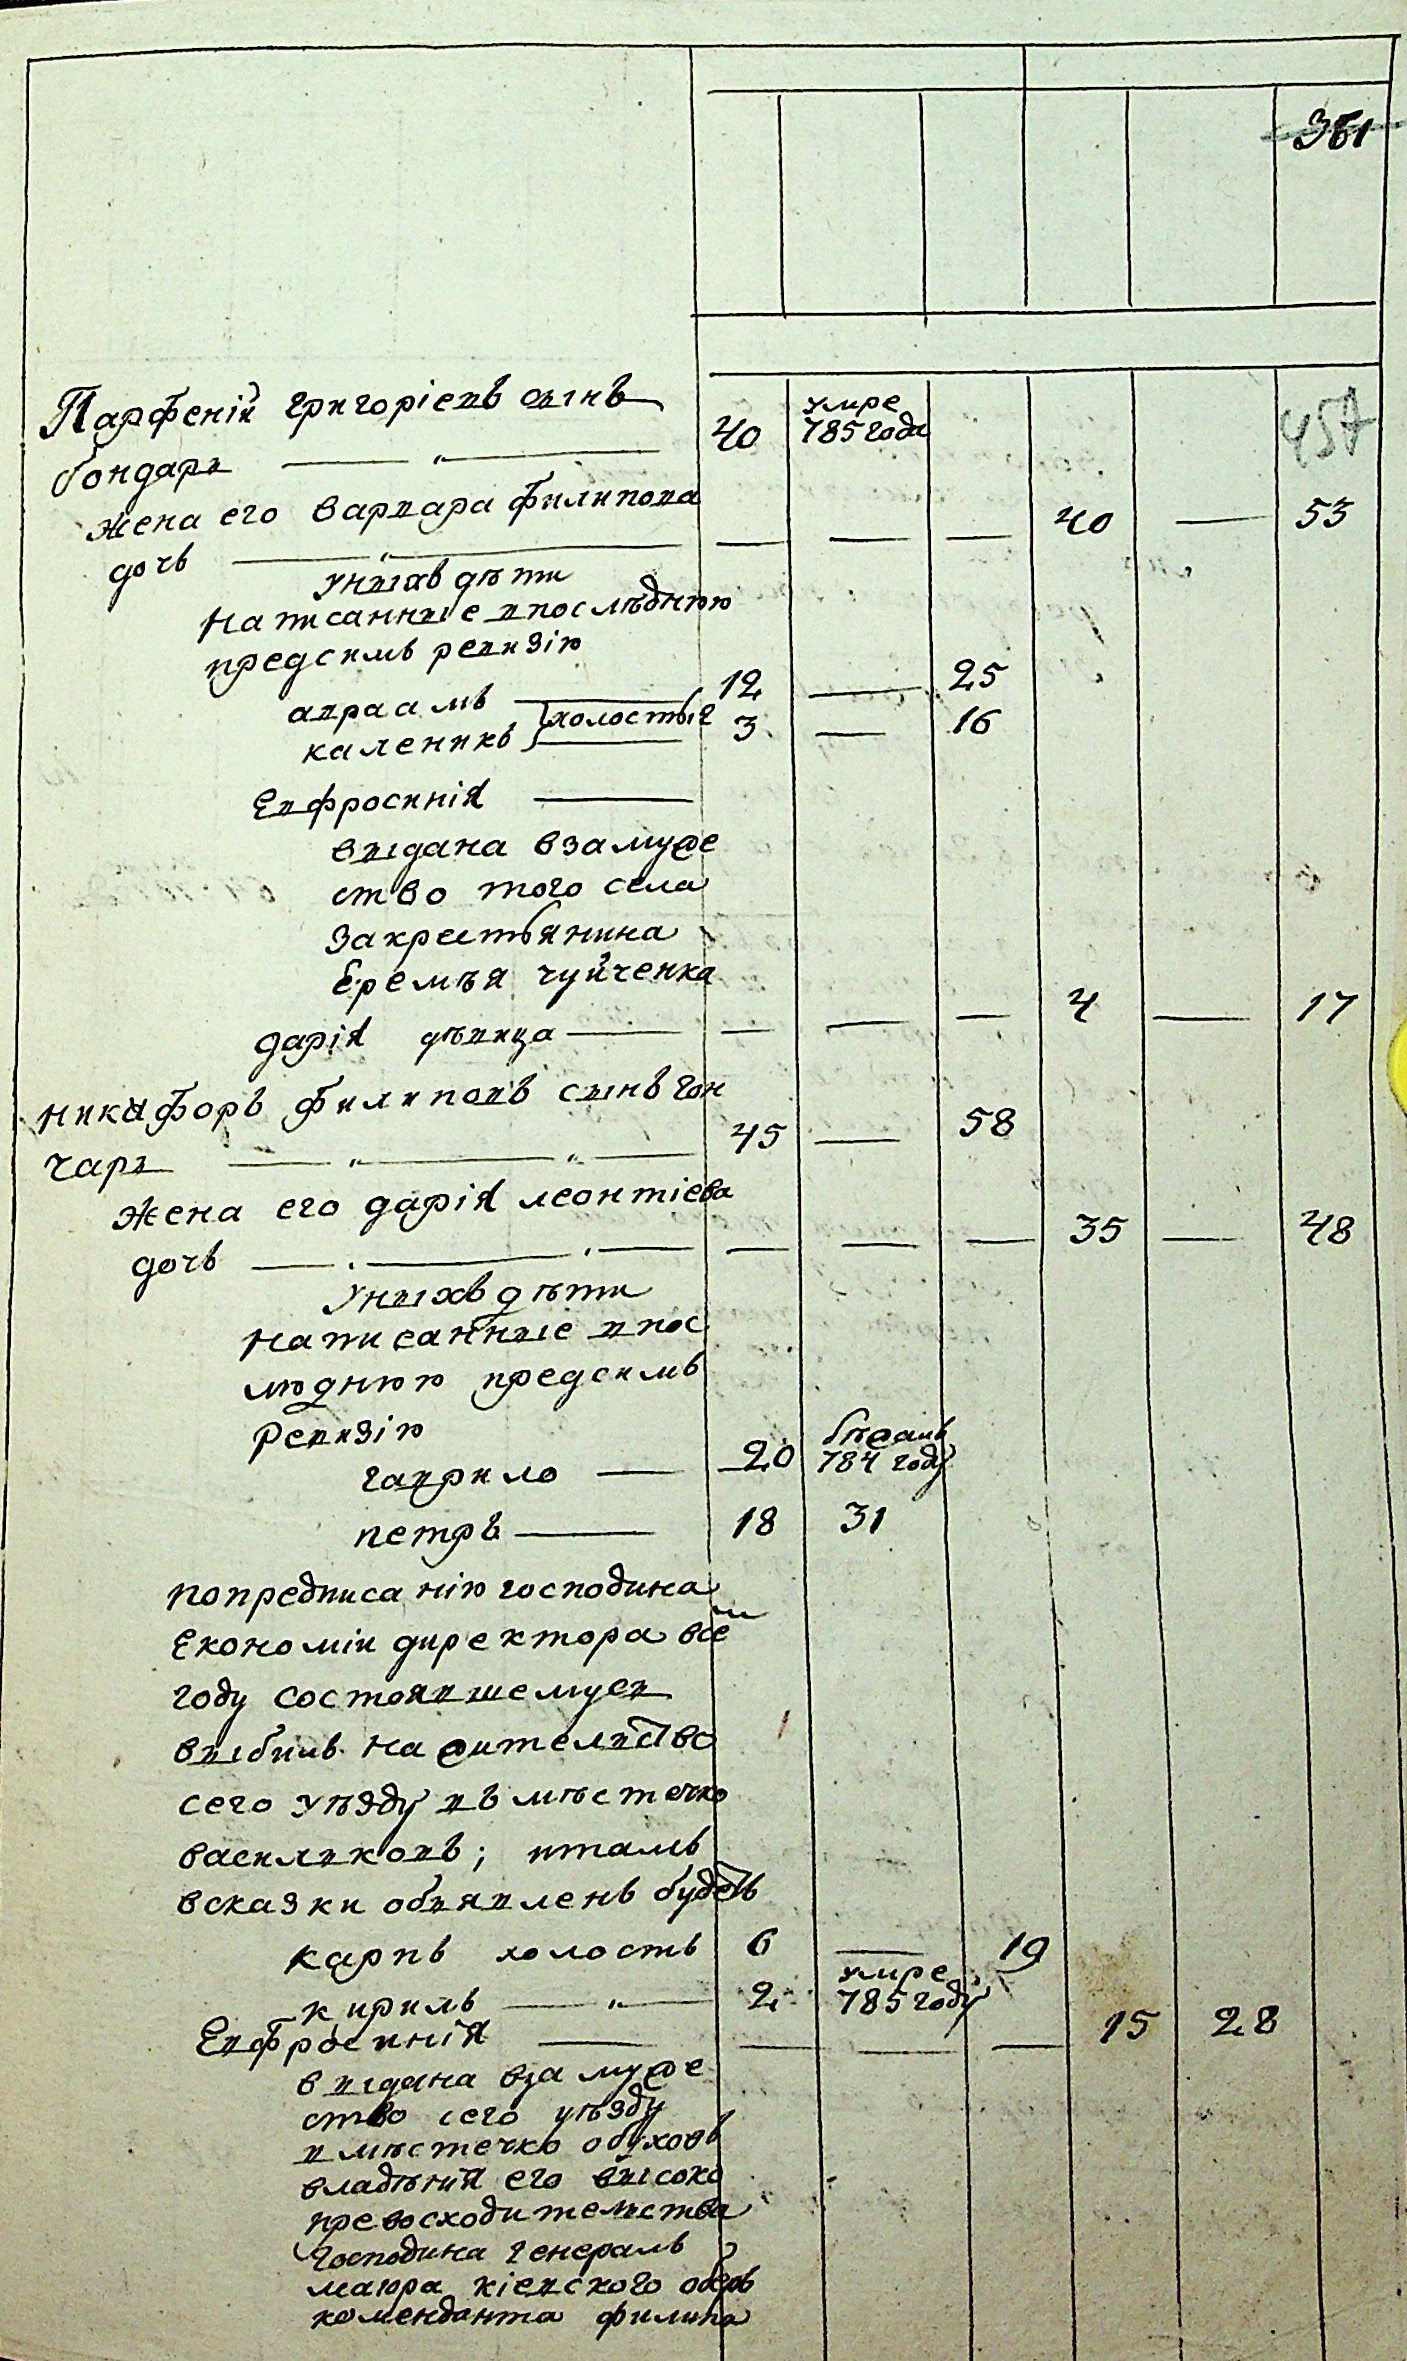 361
457
Парфеній григоріевъ сынъ
бондарь 40 умре 785 года
жена его варвара филипова
дочь 40 53
унихъ дѣти
написанные впослѣднюю
предсимъ ревизію
авраамъ 12 25
каленикъ холостые 3 16
Евфросинія
видана взамуже
ство того села
закрестьянина
Еремѣя чуйченка
дарія дѣвица 4 17
никифоръ филиповъ сынъ гон
чарь 45 58
жена его дарія леонтіева
дочь 35 48
унихъ дѣти
написанные впос
лѣднюю предсимъ
ревизію
гаврило 20 бѣжавъ 784 году
петръ 18 31
попредписанію господина
Економіи директора всей
году состоявшемуся
выбылъ на жителство
сего уѣзду въ мѣстечко
василковъ; итамъ
всказки объявленъ будетъ
карпъ холостъ 6 19
кирилъ 2 умре 785 году
Евфросинія 15 28
видана взамуже
ство сего уѣзду
вмѣстечко обуховъ
владѣнія его високо
превосходителства
господина генералъ
маіора кіевского оберъ
коменданта филипа